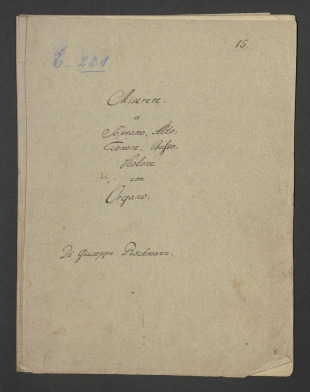 15.
E. 221
Miserere.
a
Soprano, Alto.
Tenore, Basso.
Violone
con
Organo.
Di Giuseppe Puschmann.